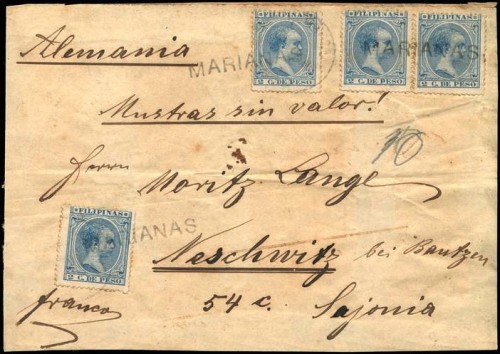 FILIPINAS
FILIPINAS
FILIPINAS
Alemania
MARIANAS
MARIANAS.
2 C. DE PESO
2 C. DE PESO
2 C. DE PESO
Mustras sin valor!
10
Herrn
Moritz Lange
FILIPINAS
IANAS
2 C. DE PESO
Neschwitz bei Bautzen
franco
54 c.
Sajonia